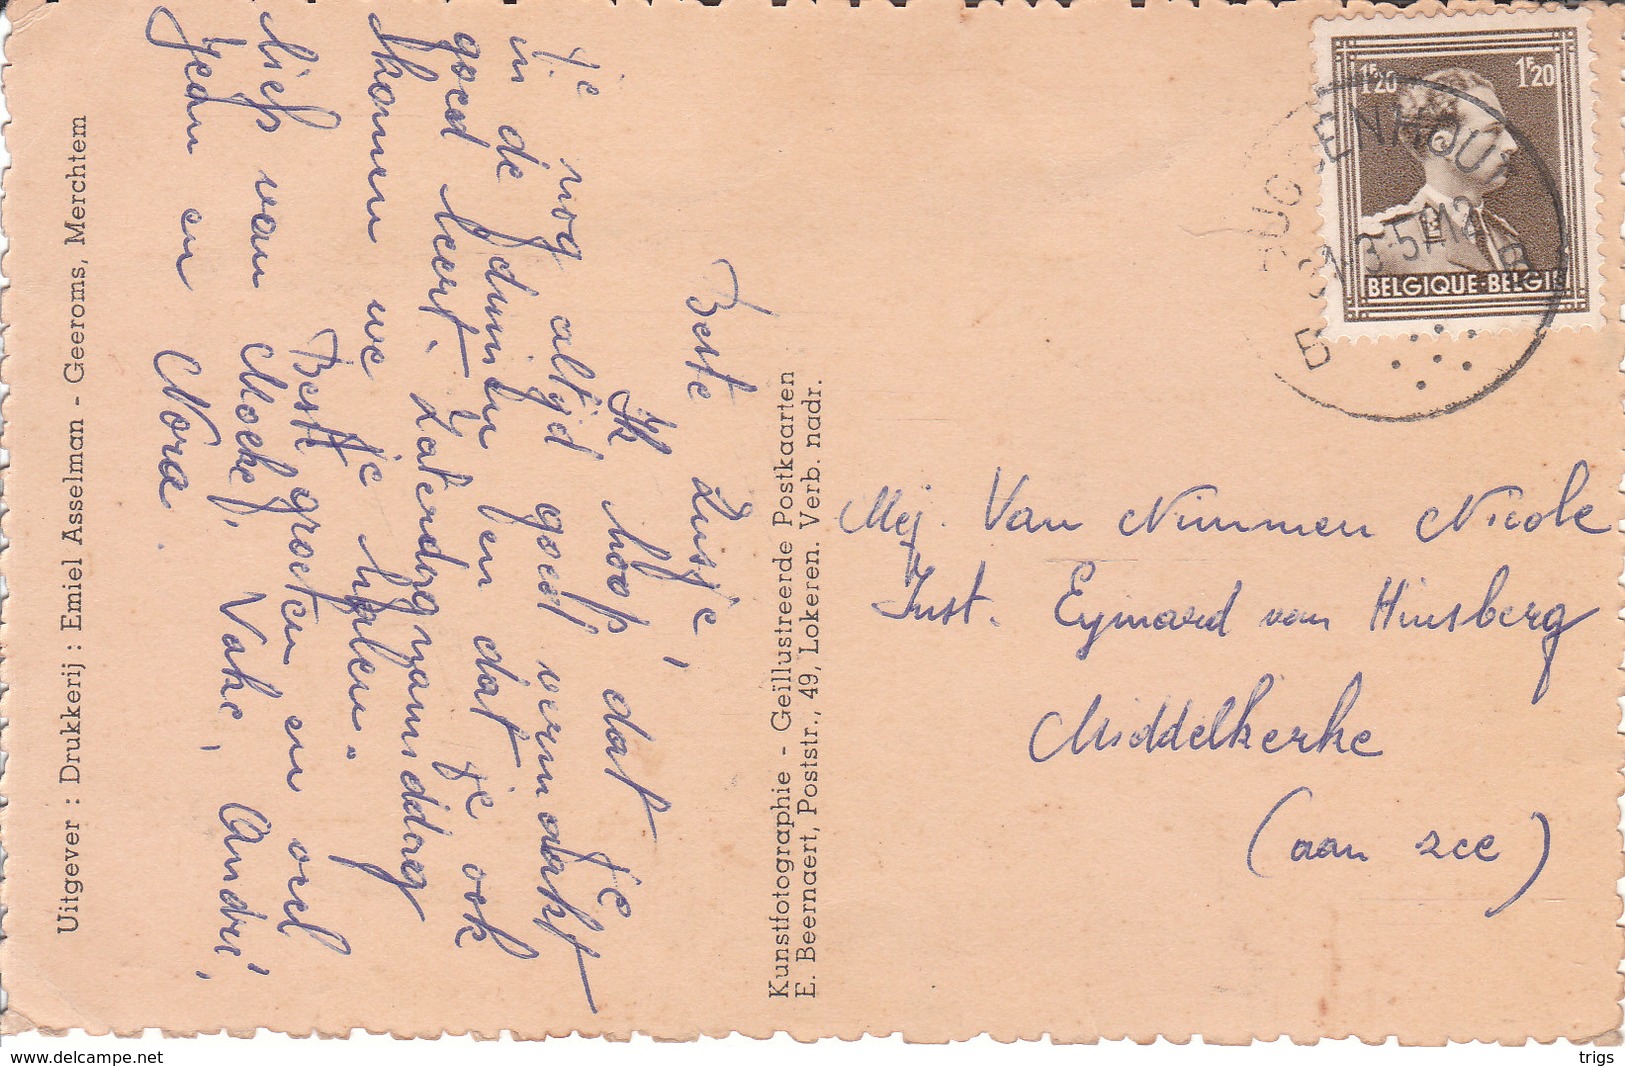 Beste Zusje,
Ik hoop dat je
je nog altijd goed vermaakt
in de duinen en dat je ook
goed leert. Zaterdagnamiddag
komen we je halen.
Beste groeten en veel
liefs van Moeke, Vake, André,
Jean en Nora.
Uitgever : Drukkerij : Emiel Asselman - Geeroms, Merchtem
Kunstfotographie - Geïllustreerde Postkaarten
E. Beernaert, Poststr., 49, Lokeren. Verb. nadr.
1F20 1F20
BELGIQUE-BELGIE
BUGGENHOUT
B B
Mej. Van Nimmen Nicole
Inst. Eymard van Hinsberg
Middelkerke
(aan zee)
www.delcampe.net
trigs